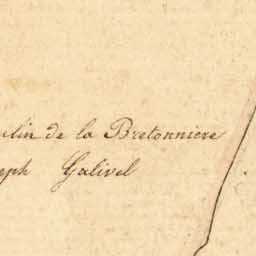 ulin de la Bretonniere
eph Galivel